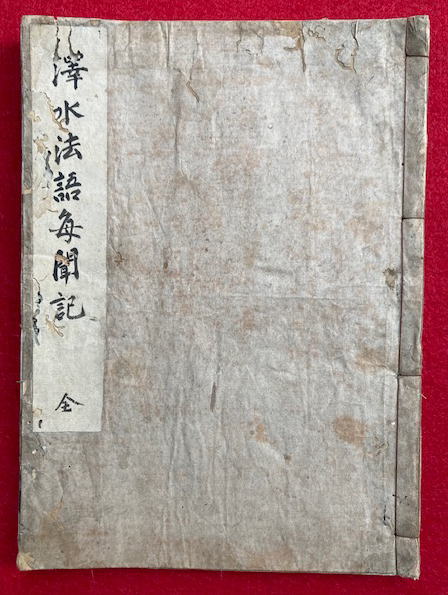 澤水法語每聞記
全